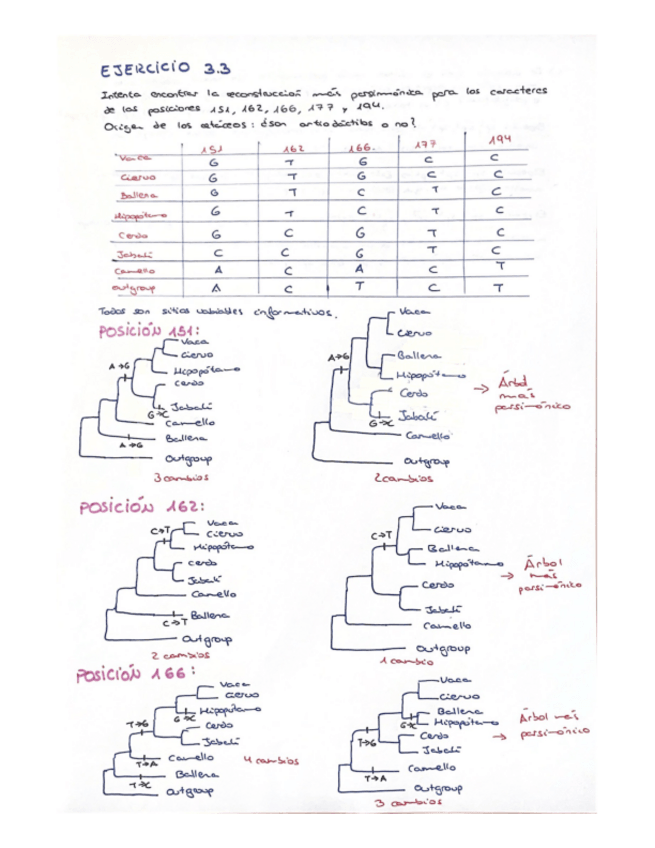 EJERCICIO 3.3
Intenta encontrar la reconstrucción más parsimónica para los caracteres
de las posiciones 151, 162, 166, 177 y 194.
Origen de los cetáceos: ¿son artiodáctilos o no?
151 162 166. 177 194
Vaca G T G C C
Ciervo G T G C C
Ballena G T C T C
Hipopótamo G T C T C
Cerdo G C G T C
Jabalí C C G T C
Camello A C A C T
outgroup A C T C T
Todos son sitios variables informativos.
POSICIÓN 151:
Vaca
Ciervo
A→G
Hipopótamo
Cerdo
Jabalí
G→C
Camello
Ballena
A→G
Outgroup
3 cambios
Vaca
Ciervo
A→G
Ballena
Hipopótamo
Cerdo
Jabalí
G→C
Camello
Outgroup
2 cambios
→ Árbol
más
parsimónico
POSICIÓN 162:
Vaca
C→T
Ciervo
Hipopótamo
Cerdo
Jabalí
Camello
Ballena
C→T
Outgroup
2 cambios
Vaca
Ciervo
C→T
Ballena
Hipopótamo
Cerdo
Jabalí
Camello
Outgroup
1 cambio
→ Árbol
más
parsimónico
POSICIÓN 166:
Vaca
Ciervo
Hipopótamo
G→C
Cerdo
T→G
Jabalí
Camello
T→A
Ballena
T→C
Outgroup
4 cambios
Vaca
Ciervo
Ballena
G→C
Hipopótamo
Cerdo
T→G
Jabalí
Camello
T→A
Outgroup
3 cambios
→ Árbol más
parsimónico